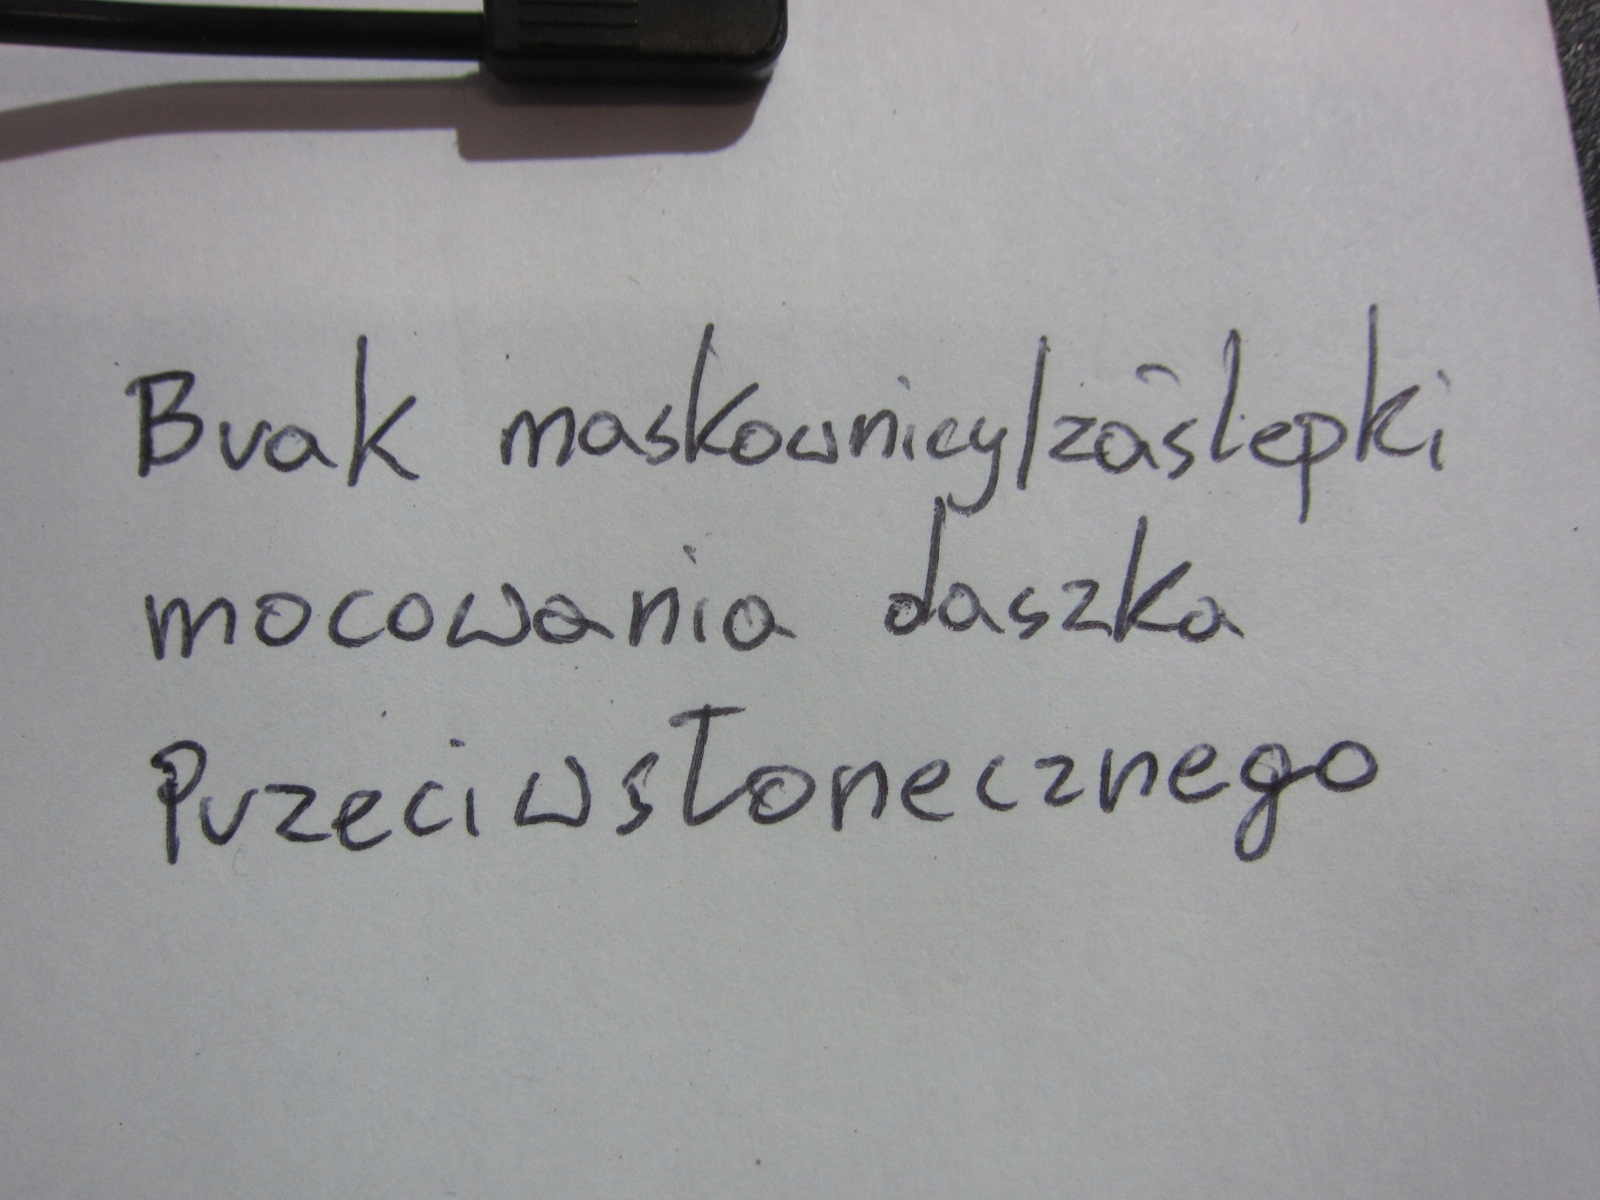 Brak maskownicy/zaślepki
mocowania daszka
Przeciwsłonecznego